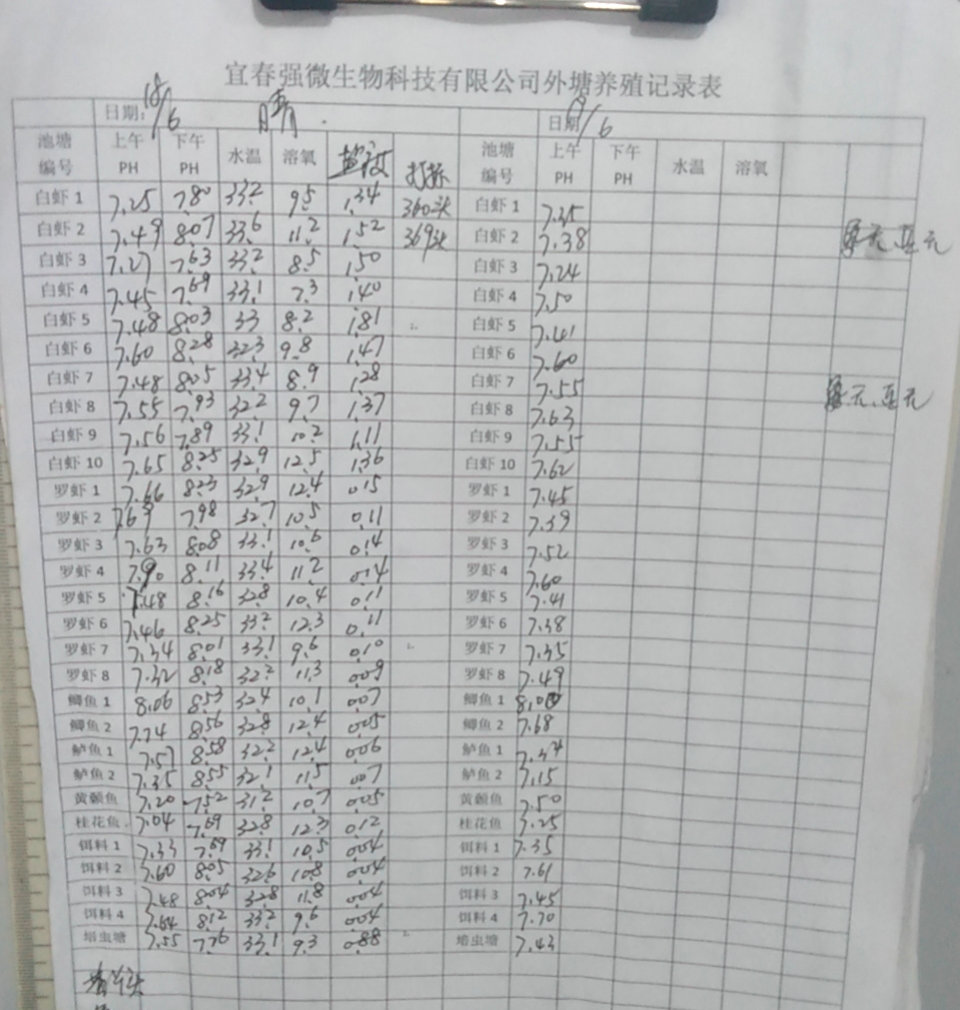 宜春强微生物科技有限公司外塘养殖记录表
日期: 18/6 晴 日期 /6
池塘编号 上午PH 下午PH 水温 溶氧 盐度 打标 池塘编号 上午PH 下午PH 水温 溶氧
白虾 1 7.25 7.80 33.2 9.5 1.34 360头 白虾 1 7.35
白虾 2 7.49 8.07 33.6 11.2 1.52 369头 白虾 2 7.38
白虾 3 7.27 7.63 33.2 8.5 1.50 白虾 3 7.24
白虾 4 7.45 7.69 33.1 7.3 1.40 白虾 4 7.50
白虾 5 7.48 8.03 33 8.2 1.81 白虾 5 7.41
白虾 6 7.60 8.28 32.3 9.8 1.47 白虾 6 7.60
白虾 7 7.48 8.05 33.4 8.9 1.28 白虾 7 7.55
白虾 8 7.55 7.93 32.2 9.7 1.37 白虾 8 7.63
白虾 9 7.56 7.89 33.1 10.2 1.11 白虾 9 7.55
白虾 10 7.65 8.25 32.9 12.5 1.36 白虾 10 7.62
罗虾 1 7.66 8.23 32.9 12.4 0.15 罗虾 1 7.45
罗虾 2 7.69 7.98 32.7 10.5 0.11 罗虾 2 7.39
罗虾 3 7.63 8.08 33.1 10.6 0.14 罗虾 3 7.52
罗虾 4 8.11 33.4 11.2 0.14 罗虾 4 7.60
罗虾 5 7.48 8.16 32.8 10.4 0.11 罗虾 5 7.41
罗虾 6 7.46 8.25 33.2 12.3 0.11 罗虾 6 7.38
罗虾 7 7.34 8.01 33.1 9.6 0.10 罗虾 7 7.35
罗虾 8 7.32 8.18 32.2 11.3 0.09 罗虾 8 7.49
鲫鱼 1 8.06 8.53 32.4 10.1 0.07 鲫鱼 1
鲫鱼 2 7.74 8.56 32.8 12.4 0.05 鲫鱼 2 7.68
鲈鱼 1 7.57 8.58 32.2 12.4 0.06 鲈鱼 1
鲈鱼 2 7.35 8.55 32.1 11.5 0.07 鲈鱼 2 7.15
黄颡鱼 7.20 7.52 31.2 10.7 0.05 黄颡鱼 7.50
桂花鱼 7.04 7.69 32.8 12.3 0.12 桂花鱼 7.25
饵料 1 7.33 7.69 33.1 10.5 0.04 饵料 1 7.35
饵料 2 7.60 8.05 32.6 10.8 0.04 饵料 2 7.61
饵料 3 7.48 8.04 32.8 11.8 0.04 饵料 3 7.45
饵料 4 7.64 8.12 33.2 9.6 0.04 饵料 4 7.70
培虫塘 7.55 7.76 33.1 9.3 0.88 培虫塘 7.43